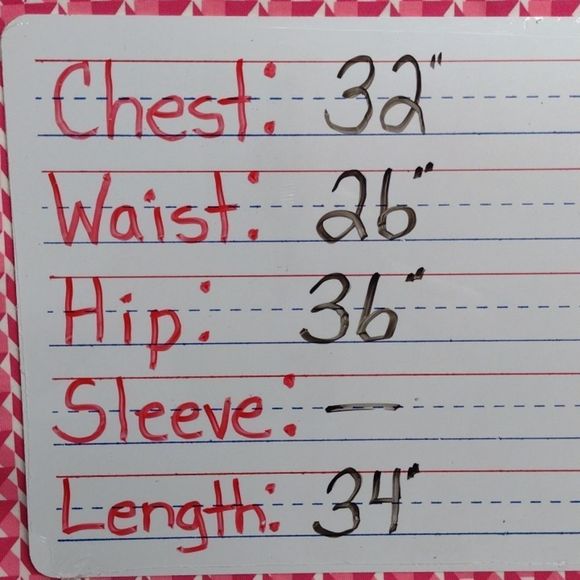 Chest: 32"
Waist: 26"
Hip: 36"
Sleeve: —
Length: 34"